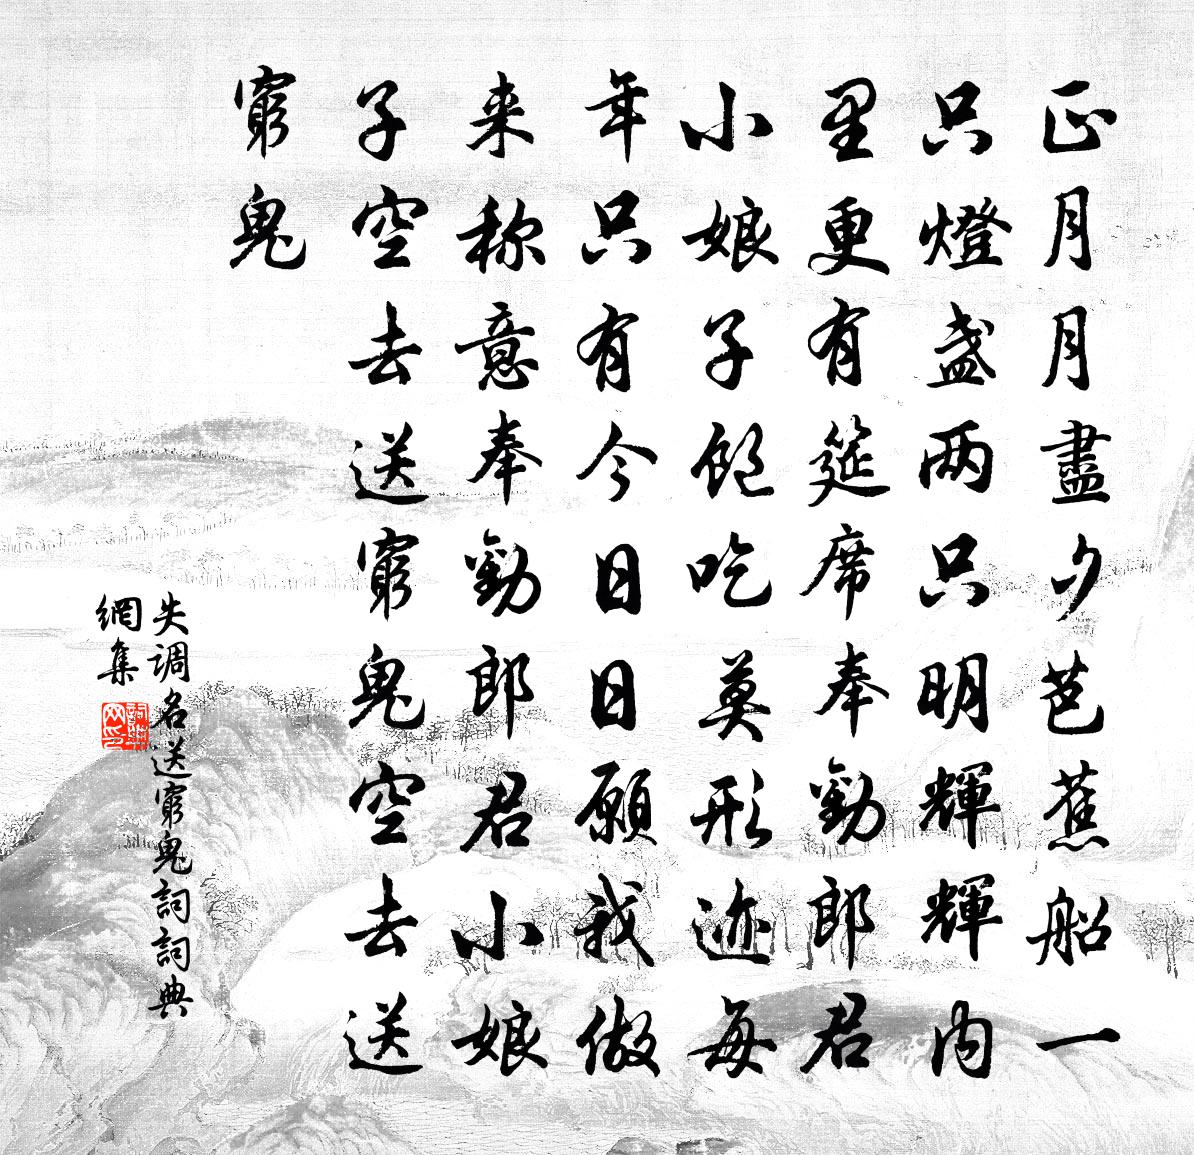 正月月盡夕芭蕉船一
只燈盞两只明輝輝内
里更有筵席奉勸郎君
小娘子飽吃莫形迹每
年只有今日日願我做
来称意奉勸郎君小娘
子空去送窮鬼空去送
窮鬼
失调名送窮鬼詞詞典
網集